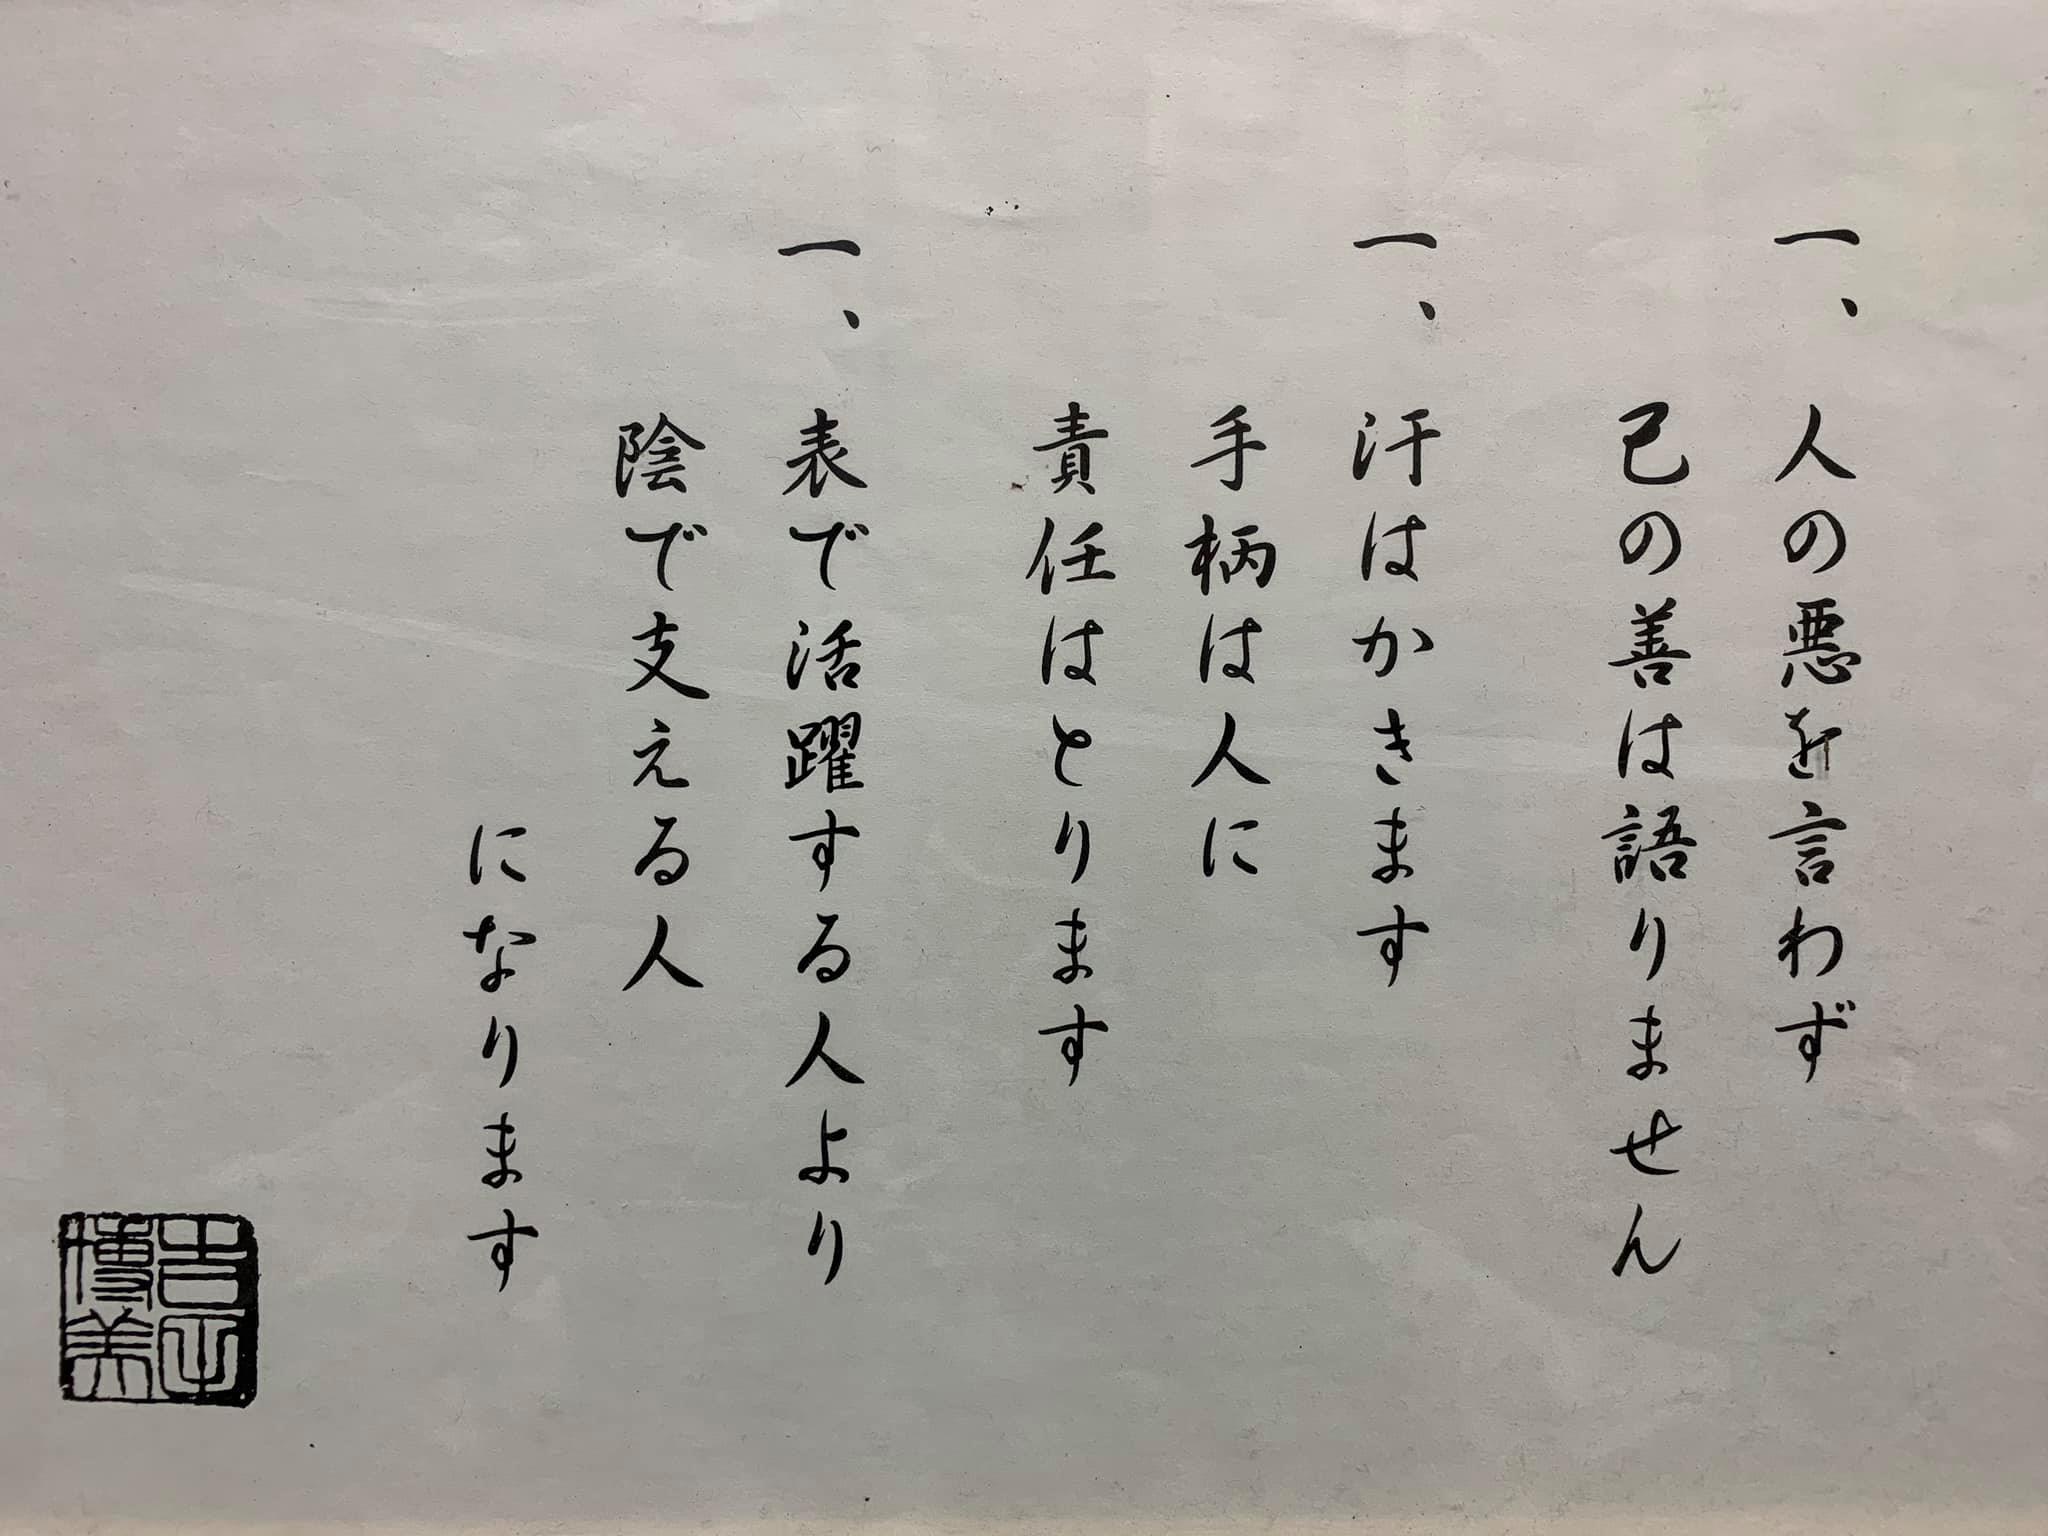 一、人の悪を言わず
己の善は語りません
一、汗はかきます
手柄は人に
責任はとります
一、表で活躍する人より
陰で支える人
になります
吉平
博美